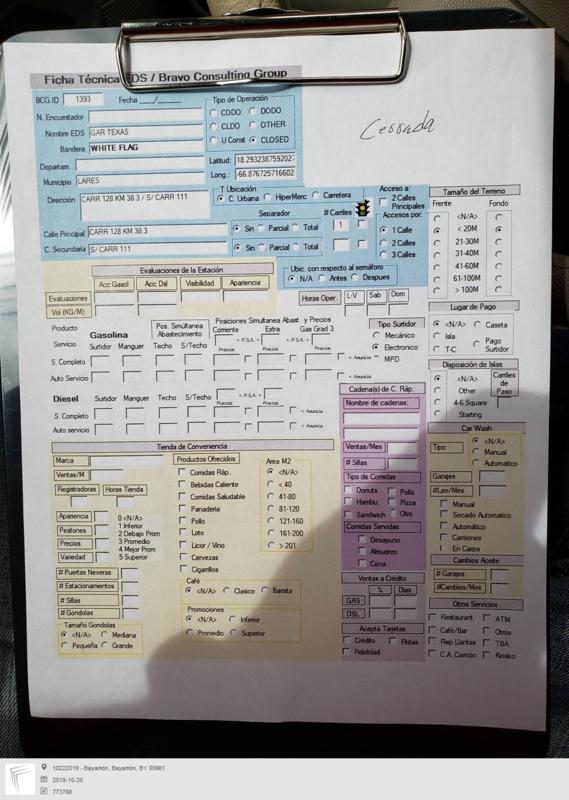 Ficha Técnica EDS / Bravo Consulting Group
BCG ID 1393 Fecha ___/_____
Tipo de Operación
CODO DODO
CLDO OTHER
U Const CLOSED
Cerrada
N. Encuestador
Nombre EDS GAR TEXAS
Bandera WHITE FLAG
Departam.
Municipio LARES
Latitud: 18.2932387592027
Long.: -66.876725716602
Dirección CARR 128 KM 38.3 / S/ CARR 111
T Ubicación
C. Urbana HiperMerc Carretera
Separador # Carriles
Calle Principal CARR 128 KM 38.3 Sin Parcial Total 1
C. Secundaria S/ CARR 111 Sin Parcial Total
Acceso a:
2 Calles Principales
Accesos por:
1 Calle
2 Calles
3 Calles
Ubic. con respecto al semáforo
N/A Antes Despues
Tamaño del Terreno
Frente Fondo
<N/A>
< 20M
21-30M
31-40M
41-60M
61-100M
> 100M
Evaluaciones de la Estación
Acc Gasol Acc Dsl Visibilidad Apariencia
Evaluaciones
Vol (KG/M):
Horas Oper. L-V Sab Dom
Lugar de Pago
<N/A> Caseta
Isla Pago Surtidor
T-C
Producto Gasolina
Pos. Simúltanea Abastecimiento
Posiciones Simultanea Abast. y Precios
Corriente Extra Gas Grad 3
Servicio Surtidor Manguer Techo S/Techo
< P.S.A. > < P.S.A. >
Precios Precios Precios
S. Completo
Auto Servicio
< Anuncio
Tipo Surtidor
Mecánico
Electronico
MPD
Diesel Surtidor Manguer Techo S/Techo
< P.S.A. >
Precios Precios
S. Completo
Auto servicio
< Anuncio
Disposición de Islas
<N/A>
Other
4-6 Square
Starting
Carriles de Paso
Cadena(s) de C. Ráp.
Nombre de cadenas:
Ventas/Mes
# Sillas
Tipo de Comidas
Donuts Pollo
Hambu. Pizza
Sandwich Otro
Comidas Servidas
Desayuno
Almuerzo
Cena
Ventas a Crédito
% Dias
GAS
DSL
Acepta Tarjetas
Crédito Flotas
Fidelidad
Car Wash
Tipo <N/A>
Manual
Automatico
Garajes
#Lav/Mes
Manual
Secado Automatico
Automático
Camiones
En Carpa
Cambios Aceite
# Garajes
#Cambios/Mes
Otros Servicios
Restaurant ATM
Café/Bar Otros
Rep Llantas TBA
C.A. Camión Kiosko
Tienda de Conveniencia
Marca
Ventas/M
Registradoras Horas Tienda
Apariencia
Peatones
Precios
Variedad
0 <N/A>
1 Inferior
2 Debajo Prom
3 Promedio
4 Mejor Prom
5 Superior
# Empleados
# Estacionamientos
# Sillas
# Gondolas
Tamaño Gondolas
<N/A> Mediana
Pequeña Grande
Productos Ofrecidos
Comidas Ráp.
Bebidas Caliente
Comidas Saludable
Panadería
Pollo
Loto
Licor / Vino
Cervezas
Cigarrillos
Area M2
<N/A>
< 40
41-80
81-120
121-160
161-200
> 201
Café
<N/A> Clasico Barista
Promociones
<N/A> Inferior
Promedio Superior
10222019 - Bayamón, Bayamón, BY 00961
2019-10-30
773786